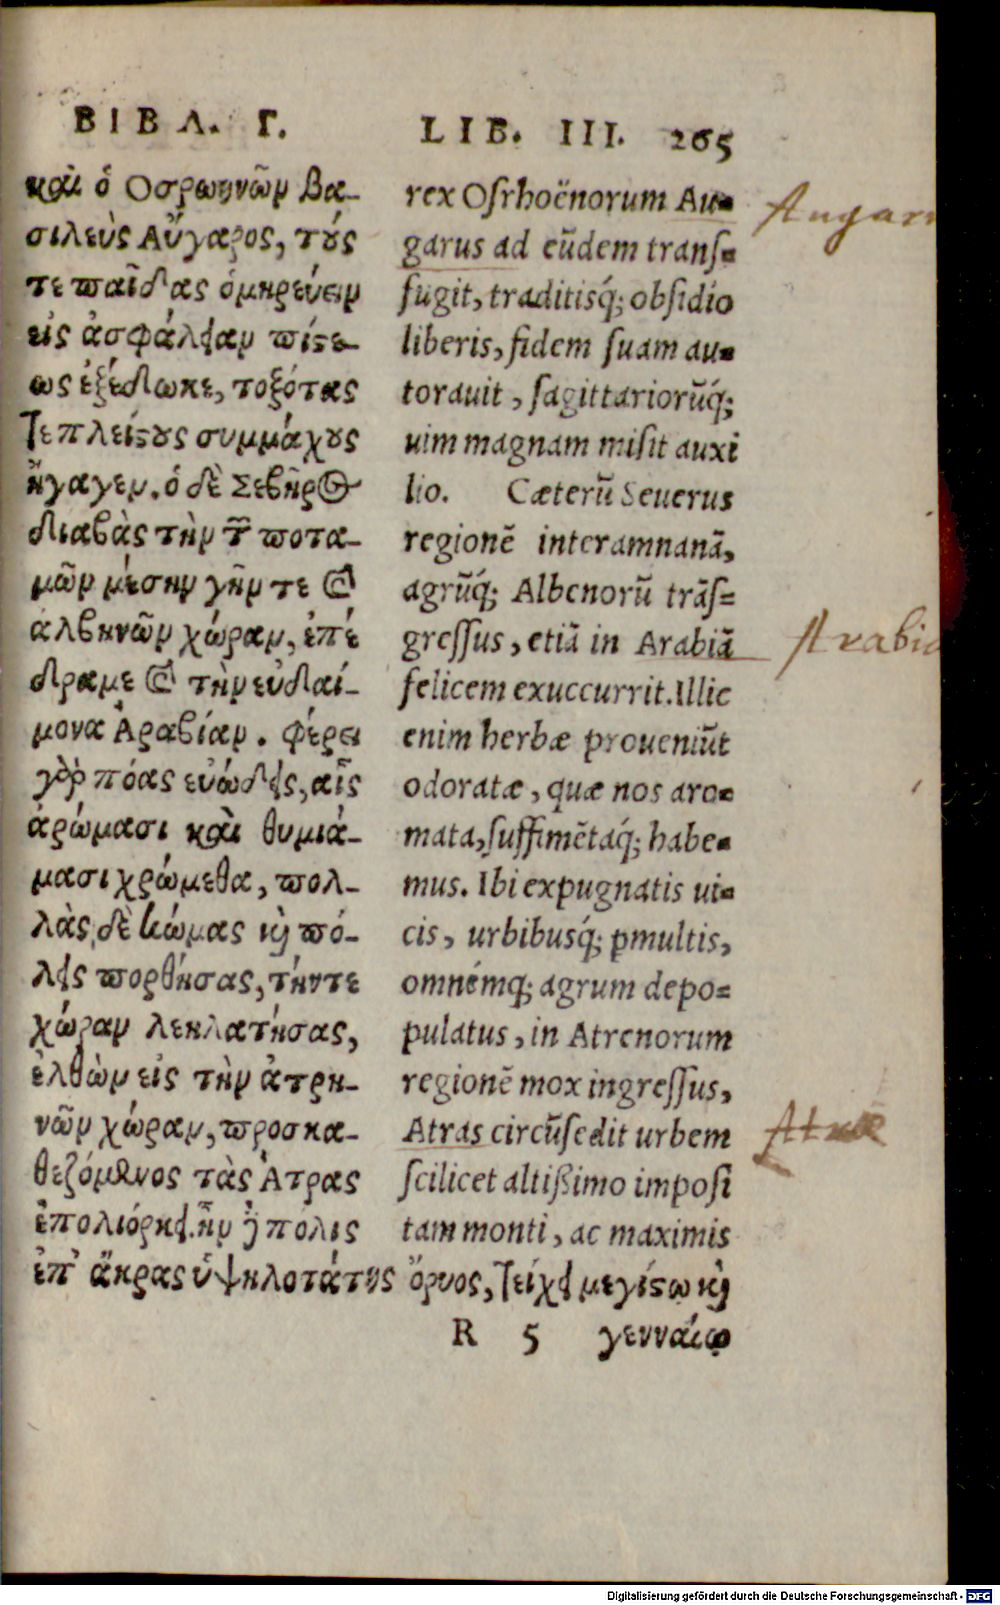 ΒΙΒΛ. Γ.
καὶ ὁ Οσρωηνῶν βα-
σιλεὺς Αὔγαρος, τούς
τε παῖδας ὁμηρεύειν
εἰς ἀσφάλειαν πίστε-
ως ἐξέδωκε, τοξότας
τε πλείστους συμμάχους
ἤγαγεν. ὁ δὲ Σεβῆρος
διαβὰς τὴν τῶν ποτα-
μῶν μέσην γῆν τε καὶ
ἀλβηνῶν χώραν, ἐπέ
δραμε καὶ τὴν εὐδαί-
μονα Ἀραβίαν. φέρει
γὰρ πόας εὐώδεις, αἷς
ἀρώμασι καὶ θυμιά-
μασι χρώμεθα, πολ-
λὰς δὲ κώμας καὶ πό-
λεις πορθήσας, τήν τε
χώραν λεηλατήσας,
ἐλθὼν εἰς τὴν ἀτρη-
νῶν χώραν, προσκα-
θεζόμενος τὰς Ἄτρας
ἐπολιόρκει. ἦν ἡ πόλις
ἐπ' ἄκρας ὑψηλοτάτης ὄρους, τείχει μεγίστῳ καὶ
LIB. III. 265
rex Osrhoënorum Au=
garus ad eũdem transſ=
fugit, traditisq́; obsidio
liberis, fidem ſuam au=
torauit, ſagittariorũq́;
uim magnam miſit auxi
lio. Cæterũ Seuerus
regionẽ interamnanã,
agrũq́; Albenorũ trãſ=
greſſus, etiã in Arabiã
felicem exuccurrit. Illic
enim herbæ proueniũt
odoratæ, quæ nos aro=
mata, ſuffimẽtaq́; habe=
mus. Ibi expugnatis ui=
cis, urbibusq́; pmultis,
omnémq; agrum depo=
pulatus, in Atrenorum
regionẽ mox ingreſſus,
Atras circũſedit urbem
ſcilicet altißimo impoſi
tam monti, ac maximis
R 5 γενναίῳ
Augar
Arabia
Atræ
Digitalisierung gefördert durch die Deutsche Forschungsgemeinschaft - DFG